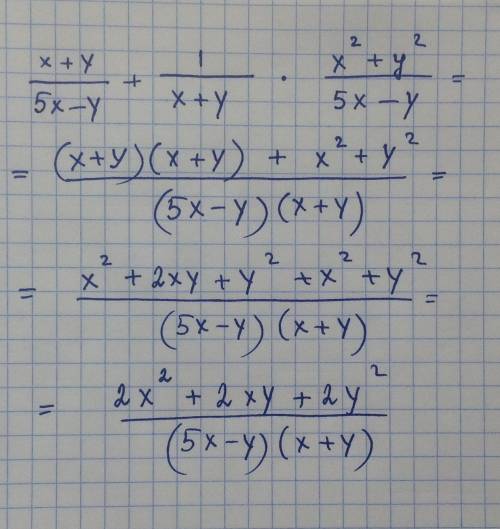 (x+y)/(5x-y) + 1/(x+y) · (x²+y²)/(5x-y) =
= ((x+y)(x+y) + x²+y²)/((5x-y)(x+y)) =
= (x²+2xy+y²+x²+y²)/((5x-y)(x+y)) =
= (2x²+2xy+2y²)/((5x-y)(x+y))